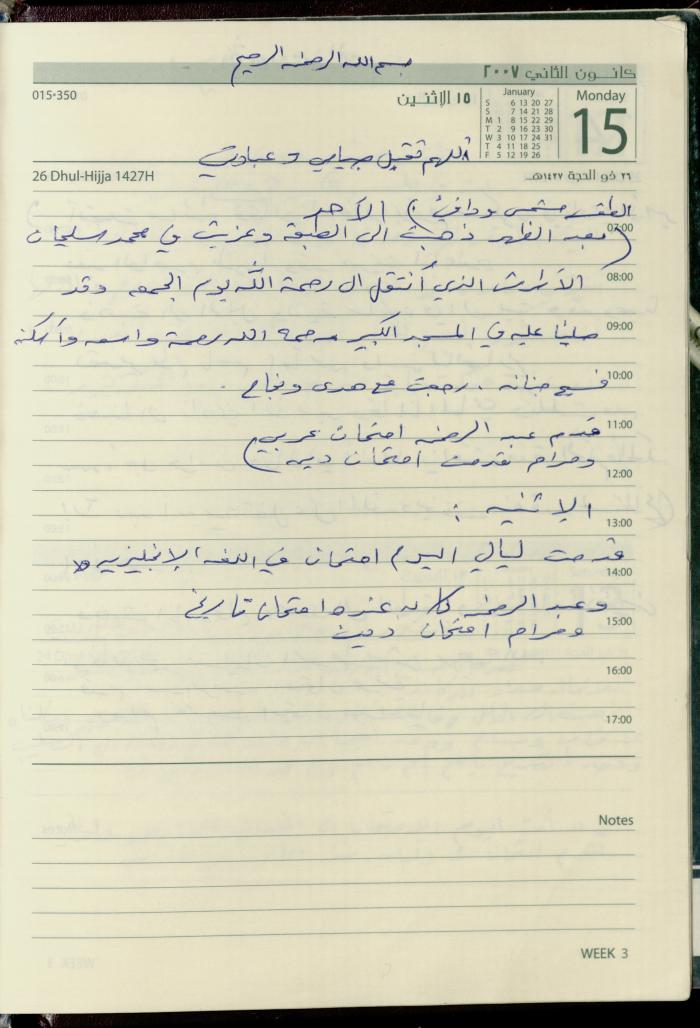 بسم الله الرحمن الرحيم
كانون الثاني ٢٠٠٧
015-350
١٥ الاثنين
January
S 6 13 20 27
S 7 14 21 28
M 1 8 15 22 29
T 2 9 16 23 30
W 3 10 17 24 31
T 4 11 18 25
F 5 12 19 26
Monday
15
اللهم تقبل صيامي وعبادتي
26 Dhul-Hijja 1427H
٢٦ ذو الحجة ١٤٢٧هـ
الطقس مشمس ودافئ ) الأحد
07:00
( بعد الظهر ذهبت الى الطبقة وعزيت في محمد سليمان
08:00
الذي أنتقل الى رحمة الله يوم الجمعه وقد
09:00
صلينا عليه في المسجد الكبير رحمه الله رحمة واسعه وأسكنه
10:00
فسيح جنانه . رجعت مع هدى ونجاح .
11:00
قدم عبد الرحمن امتحان عربي
ومرام قدمت امتحان دين )
12:00
الاثنين :
13:00
قدمت ليالي اليوم امتحان في اللغه الإنجليزيه
14:00
وعبد الرحمن كان عنده امتحان تاريخ
15:00
ومرام امتحان دين
16:00
17:00
Notes
WEEK 3